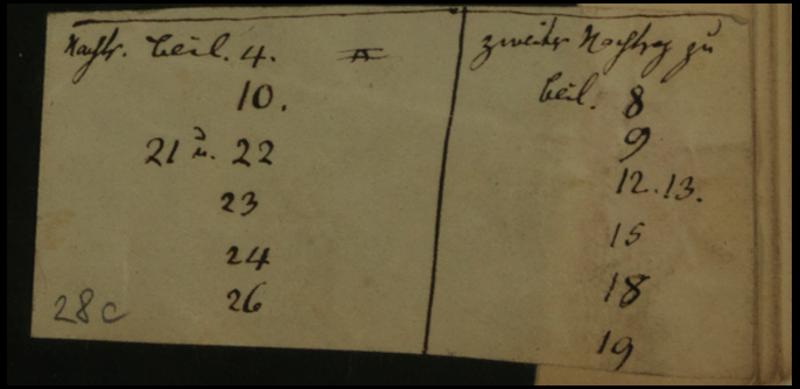 Nachtr. Beil. 4.
10.
21 u. 22
23
24
26
28c
zweiter Nachtrag zu
Beil. 8
9
12.13.
15
18
19